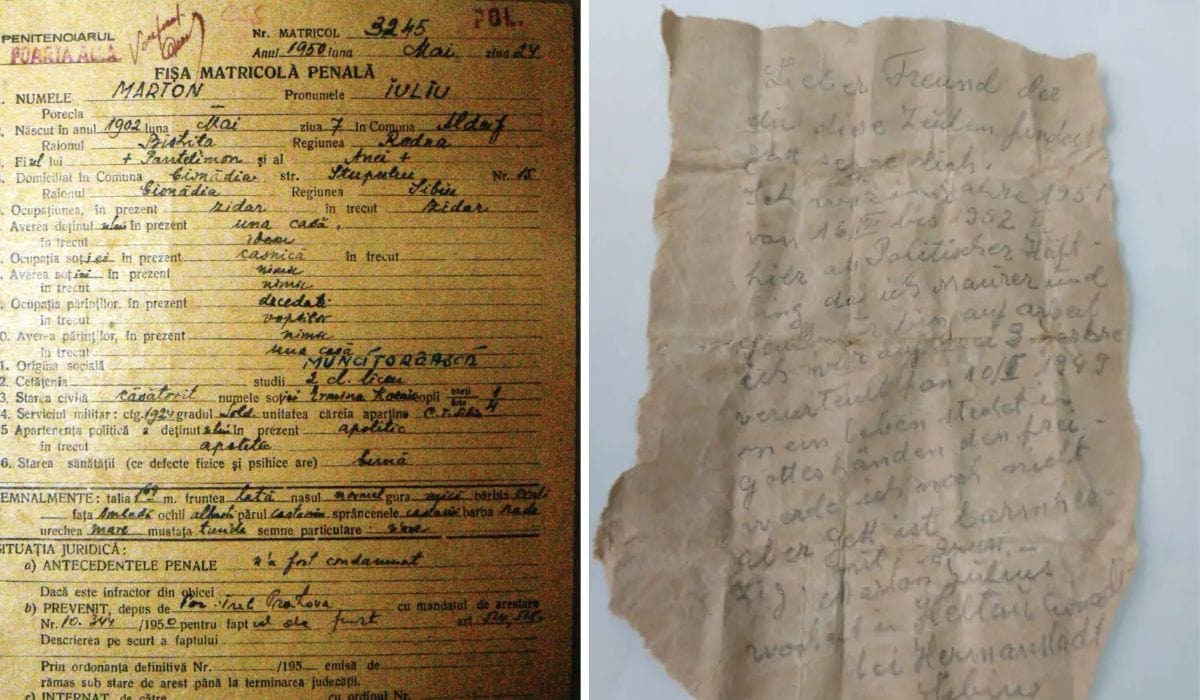 PENITENCIARUL
POARTA ALBA
CSS
POL.
Nr. MATRICOL 3245
Anul 1950 luna Mai ziua 24
FIȘA MATRICOLĂ PENALĂ
NUMELE MARTON Pronumele IULIU
Porecla
Născut în anul 1902 luna Mai ziua 7 în Comuna
Raionul Bistrița Regiunea Rodna
Fiul lui + Pantelimon și al Anei +
Domiciliat în Comuna Cisnădia str. Nr. 15
Raionul Cisnădia Regiunea Sibiu
Ocupațiunea, în prezent zidar în trecut zidar
Averea deținutului în prezent una casă,
în trecut idem
Ocupația soției în prezent casnică în trecut
Averea soției în prezent nimic
în trecut nimic
Ocupația părinților, în prezent decedați
în trecut
0. Averea părinților, în prezent nimic
în trecut una casă
1. Origina socială MUNCITOREASCĂ
2. Cetățenia studii 2 cl. liceu
3. Starea civilă căsătorit numele soției copii
4. Serviciul militar: ctg. 1924 gradul Sold. unitatea căreia aparține
5 Apartenența politică a deținutului în prezent apolitic
în trecut apolitic
6. Starea sănătății (ce defecte fizice și psihice are) bună
SEMNALMENTE: talia m. fruntea lată nasul normal gura mică bărbia
fața ochii părul castaniu sprâncenele castanii barba rade
urechea mare mustața tunde semne particulare:
SITUAȚIA JURIDICĂ:
a) ANTECEDENTELE PENALE n'a fost condamnat
Dacă este infractor din obicei
b) PREVENIT, depus de cu mandatul de arestare
Nr. 10.344 /1950 pentru fapt ul de furt art.
Descrierea pe scurt a faptului
Prin ordonanța definitivă Nr. /195 emisă de
rămas sub stare de arest până la terminarea judecății.
c) INTERNAT de către cu ordinul Nr.
Lieber Freund der
du diese Zeilen findest
Gott segne dich.
Ich war im Jahre 1951
von 16 bis 1952
hier als Politischer Häft-
ling da ich Maurer und
auf arbeit
ich war auf 3
verurteilt von 10/ 1949
mein leben stedet in
gottes händen den frei-
werde ich noch nicht
aber gott ist barmher-
zig. mit
Marton Julius
wohnhaft in Heltau
bei Hermanstadt
Sibiu